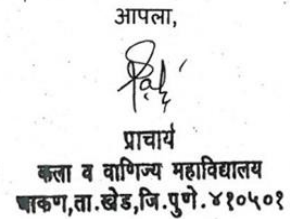 आपला,
प्राचार्य
कला व वाणिज्य महाविद्यालय
चाकण,ता.खेड,जि.पुणे.४१०५०१